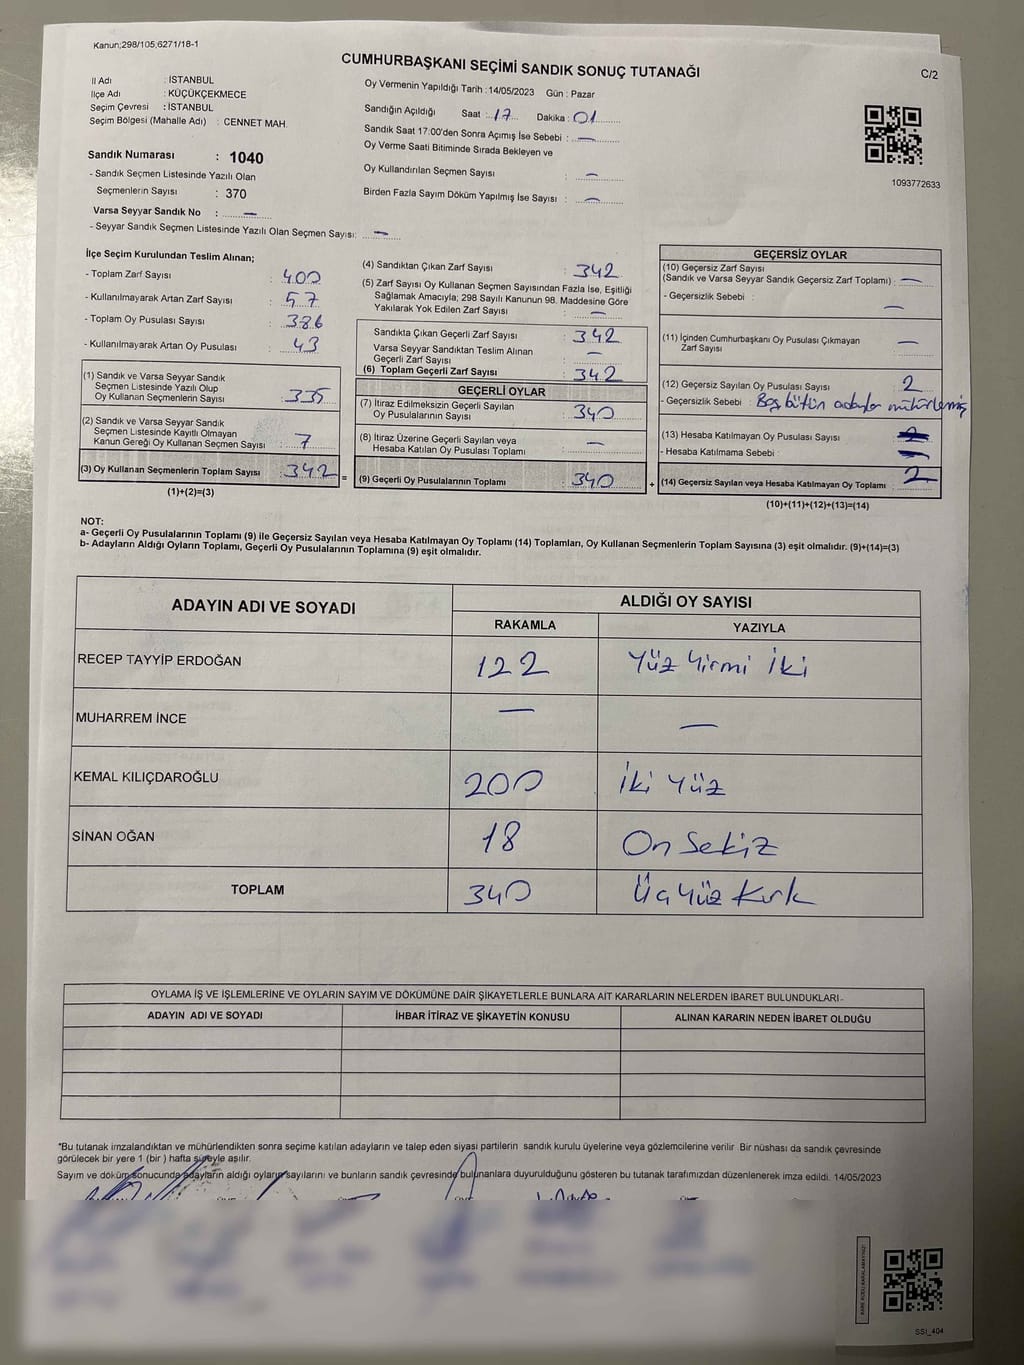 Kanun;298/105,6271/18-1
CUMHURBAŞKANI SEÇİMİ SANDIK SONUÇ TUTANAĞI
C/2
İl Adı : İSTANBUL
İlçe Adı : KÜÇÜKÇEKMECE
Seçim Çevresi : İSTANBUL
Seçim Bölgesi (Mahalle Adı) : CENNET MAH.
Sandık Numarası : 1040
- Sandık Seçmen Listesinde Yazılı Olan
Seçmenlerin Sayısı : 370
Varsa Seyyar Sandık No : —
- Seyyar Sandık Seçmen Listesinde Yazılı Olan Seçmen Sayısı: —
Oy Vermenin Yapıldığı Tarih : 14/05/2023 Gün : Pazar
Sandığın Açıldığı Saat : 17 Dakika : 01
Sandık Saat 17:00'den Sonra Açımış İse Sebebi : —
Oy Verme Saati Bitiminde Sırada Bekleyen ve
Oy Kullandırılan Seçmen Sayısı : —
Birden Fazla Sayım Döküm Yapılmış İse Sayısı : —
1093772633
İlçe Seçim Kurulundan Teslim Alınan;
- Toplam Zarf Sayısı : 400
- Kullanılmayarak Artan Zarf Sayısı : 57
- Toplam Oy Pusulası Sayısı : 386
- Kullanılmayarak Artan Oy Pusulası : 43
(1) Sandık ve Varsa Seyyar Sandık
Seçmen Listesinde Yazılı Olup
Oy Kullanan Seçmenlerin Sayısı : 335
(2) Sandık ve Varsa Seyyar Sandık
Seçmen Listesinde Kayıtlı Olmayan
Kanun Gereği Oy Kullanan Seçmen Sayısı : 7
(3) Oy Kullanan Seçmenlerin Toplam Sayısı : 342
(1)+(2)=(3)
=
(4) Sandıktan Çıkan Zarf Sayısı : 342
(5) Zarf Sayısı Oy Kullanan Seçmen Sayısından Fazla İse, Eşitliği
Sağlamak Amacıyla; 298 Sayılı Kanunun 98. Maddesine Göre
Yakılarak Yok Edilen Zarf Sayısı : —
Sandıkta Çıkan Geçerli Zarf Sayısı : 342
Varsa Seyyar Sandıktan Teslim Alınan
Geçerli Zarf Sayısı : —
(6) Toplam Geçerli Zarf Sayısı : 342
GEÇERLİ OYLAR
(7) İtiraz Edilmeksizin Geçerli Sayılan
Oy Pusulalarının Sayısı : 340
(8) İtiraz Üzerine Geçerli Sayılan veya
Hesaba Katılan Oy Pusulası Toplamı : —
(9) Geçerli Oy Pusulalarının Toplamı : 340
+
GEÇERSİZ OYLAR
(10) Geçersiz Zarf Sayısı
(Sandık ve Varsa Seyyar Sandık Geçersiz Zarf Toplamı) : —
- Geçersizlik Sebebi : —
(11) İçinden Cumhurbaşkanı Oy Pusulası Çıkmayan
Zarf Sayısı : —
(12) Geçersiz Sayılan Oy Pusulası Sayısı : 2
- Geçersizlik Sebebi : Boş bütün adaylar mühürlemiş
(13) Hesaba Katılmayan Oy Pusulası Sayısı : —
- Hesaba Katılmama Sebebi : —
(14) Geçersiz Sayılan veya Hesaba Katılmayan Oy Toplamı : 2
(10)+(11)+(12)+(13)=(14)
NOT:
a- Geçerli Oy Pusulalarının Toplamı (9) ile Geçersiz Sayılan veya Hesaba Katılmayan Oy Toplamı (14) Toplamları, Oy Kullanan Seçmenlerin Toplam Sayısına (3) eşit olmalıdır. (9)+(14)=(3)
b- Adayların Aldığı Oyların Toplamı, Geçerli Oy Pusulalarının Toplamına (9) eşit olmalıdır.
ADAYIN ADI VE SOYADI ALDIĞI OY SAYISI
RAKAMLA YAZIYLA
RECEP TAYYİP ERDOĞAN 122 Yüz Yirmi İki
MUHARREM İNCE — —
KEMAL KILIÇDAROĞLU 200 İki Yüz
SİNAN OĞAN 18 On Sekiz
TOPLAM 340 Üç Yüz Kırk
OYLAMA İŞ VE İŞLEMLERİNE VE OYLARIN SAYIM VE DÖKÜMÜNE DAİR ŞİKAYETLERLE BUNLARA AİT KARARLARIN NELERDEN İBARET BULUNDUKLARI
ADAYIN ADI VE SOYADI İHBAR İTİRAZ VE ŞİKAYETİN KONUSU ALINAN KARARIN NEDEN İBARET OLDUĞU
*Bu tutanak imzalandıktan ve mühürlendikten sonra seçime katılan adayların ve talep eden siyasi partilerin sandık kurulu üyelerine veya gözlemcilerine verilir. Bir nüshası da sandık çevresinde
görülecek bir yere 1 (bir ) hafta süreyle asılır.
Sayım ve döküm sonucunda adayların aldığı oyların sayılarını ve bunların sandık çevresinde bulunanlara duyurulduğunu gösteren bu tutanak tarafımızdan düzenlenerek imza edildi. 14/05/2023
SSI_404